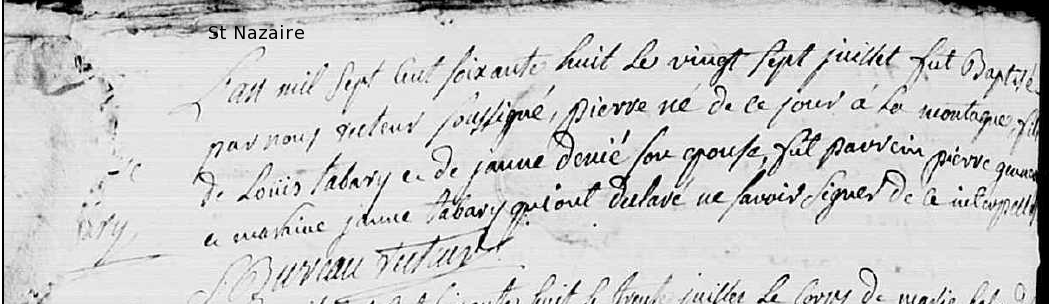 St Nazaire
L'an mil sept cent soixante huit le vingt sept juillet fut Baptisé
par nous recteur soussigné, pierre né de ce jour à la montagne, fils
de Louis tabary et de janne denié son epouse, fut parrein pierre
et maraine janne tabary qui ont declaré ne savoir signer de ce interpellés
Bureau recteur
huit le trente juillet le corps de marie